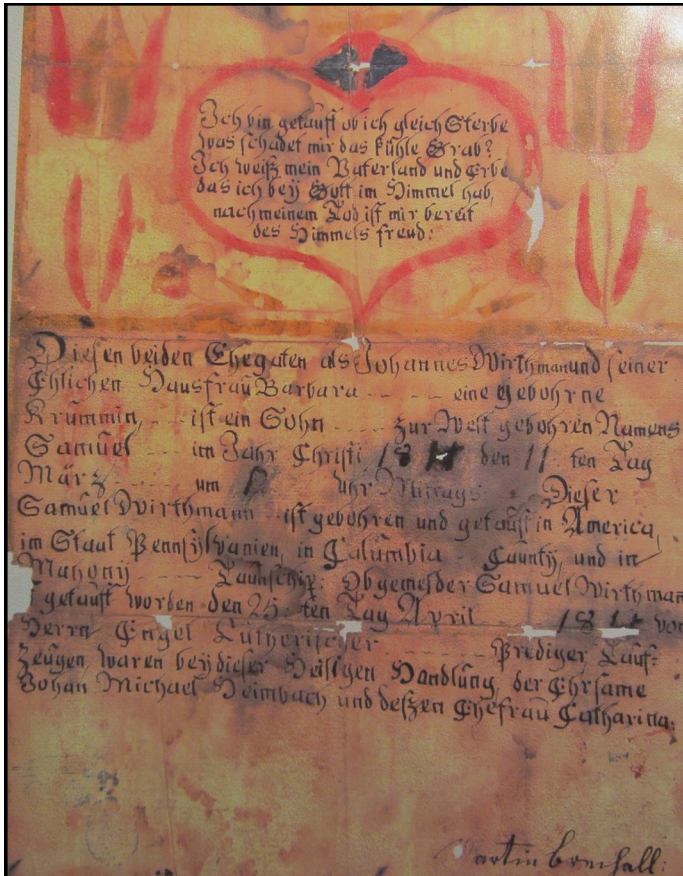 Ich bin getauft ob ich gleich Sterbe
was schadet mir das kühle Grab?
Ich weiß mein Vaterland und Erbe
das ich beÿ Gott im Himmel hab,
nach meinem Tod ist mir bereit
des Himmels freud:
Diesen beiden Ehegaten als Johannes Wirthman und seiner
Ehlichen Hausfrau Barbara - - - - eine gebohrne
Krummin, - - ist ein Sohn - - - zur Welt gebohren Namens
Samuel - - - im Jahr Christi den 11. ten Tag
März - - - um Uhr Mittags. Dieser
Samuel Wirthmann - ist gebohren und getauft in America,
im Staat Pennsÿlvanien, in Calumbia - Caunty, und in
Mahonÿ - - - Taunschip: Obgemelder Samuel Wirthman
getauft worden den 25. ten Tag April von
Herrn Engel Lutherischer - - - - - Prediger Tauf=
Zeugen, waren beÿ dieser Heiligen Handlung, der Ehrsame
Johan Michael Heimbach und deßen Ehefrau Catharina: